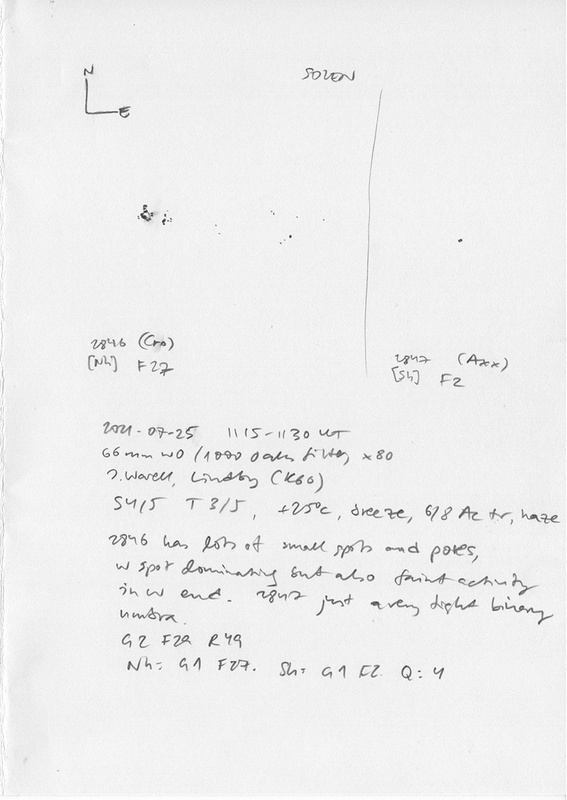 N
SOLEN
E
2846 (Cro)
[Nh] F27
2847 (Axx)
[Sh] F2
2021-07-25 1115-1130 UT
66mm WO / 1000 Oaks filter, x80
J. Warell, Lindby (K60)
S4/5 T 3/5, +25°C, breeze, 6/8 Ac tr, haze
2846 has lots of small spots and pores,
W spot dominating but also faint activity
in W end. 2847 just a very tight binary
umbra.
G2 F29 R49
Nh= G1 F27. Sh= G1 F2. Q: 4